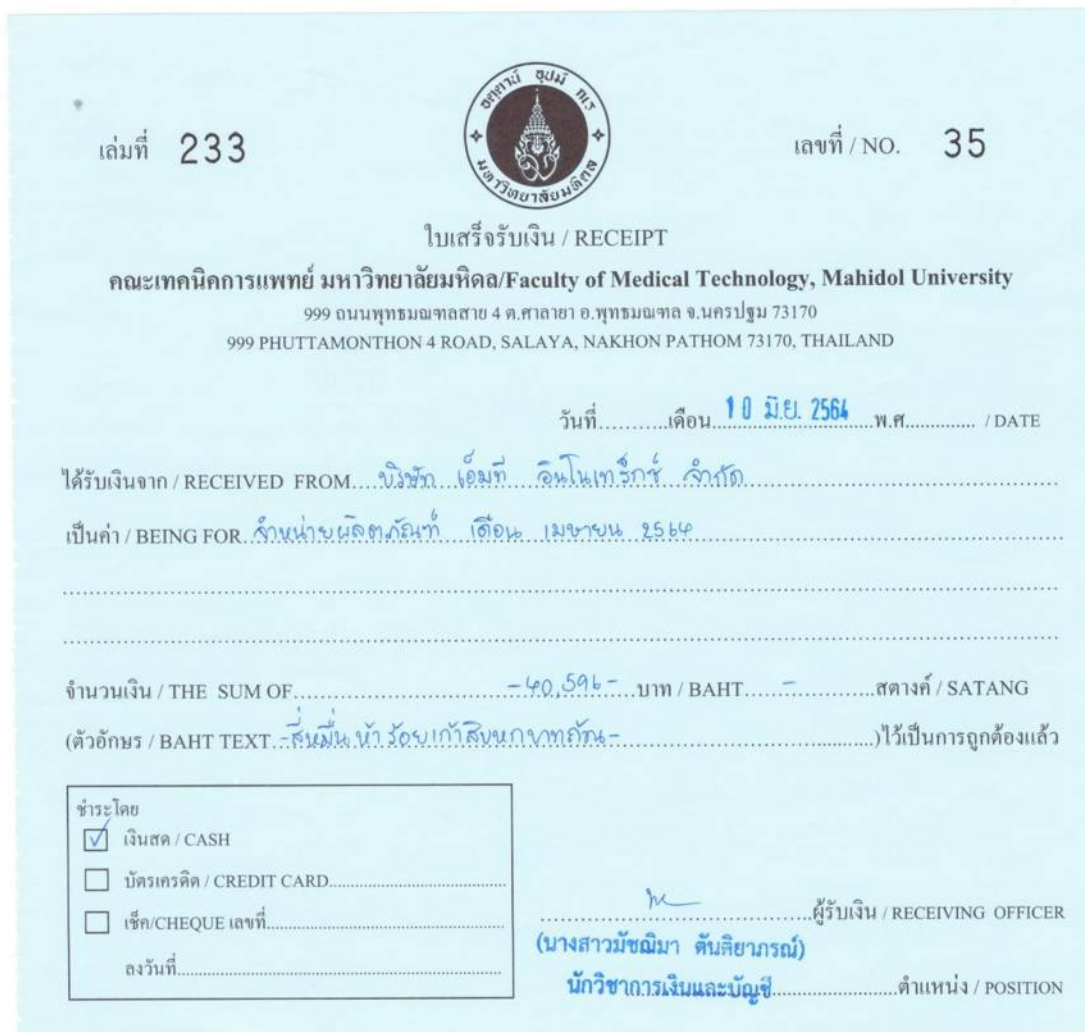 อตฺตานํ อุปมํ กเร
มหาวิทยาลัยมหิดล
เล่มที่ 233
เลขที่ / NO. 35
ใบเสร็จรับเงิน / RECEIPT
คณะเทคนิคการแพทย์ มหาวิทยาลัยมหิดล/Faculty of Medical Technology, Mahidol University
999 ถนนพุทธมณฑลสาย 4 ต.ศาลายา อ.พุทธมณฑล จ.นครปฐม 73170
999 PHUTTAMONTHON 4 ROAD, SALAYA, NAKHON PATHOM 73170, THAILAND
วันที่...........เดือน 10 มิ.ย. 2564 พ.ศ.............. / DATE
ได้รับเงินจาก / RECEIVED FROM บริษัท เอ็มที อินโนเทร็กซ์ จำกัด
เป็นค่า / BEING FOR จำหน่ายผลิตภัณฑ์ เดือน เมษายน 2564
จำนวนเงิน / THE SUM OF -40,596- บาท / BAHT - สตางค์ / SATANG
(ตัวอักษร / BAHT TEXT -สี่หมื่นห้าร้อยเก้าสิบหกบาทถ้วน- )ไว้เป็นการถูกต้องแล้ว
ชำระโดย
เงินสด / CASH
บัตรเครดิต / CREDIT CARD
เช็ค/CHEQUE เลขที่
ลงวันที่
ผู้รับเงิน / RECEIVING OFFICER
(นางสาวมัชฌิมา ตันติยาภรณ์)
นักวิชาการเงินและบัญชี ตำแหน่ง / POSITION